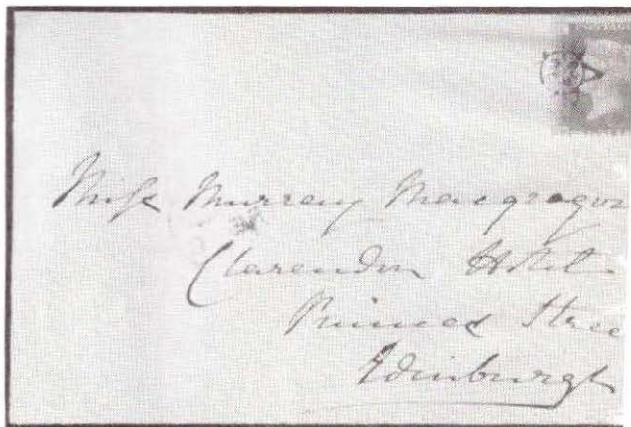 Miss Murray Macgregor
Clarendon Hotel
Princes Stree
Edinburgh